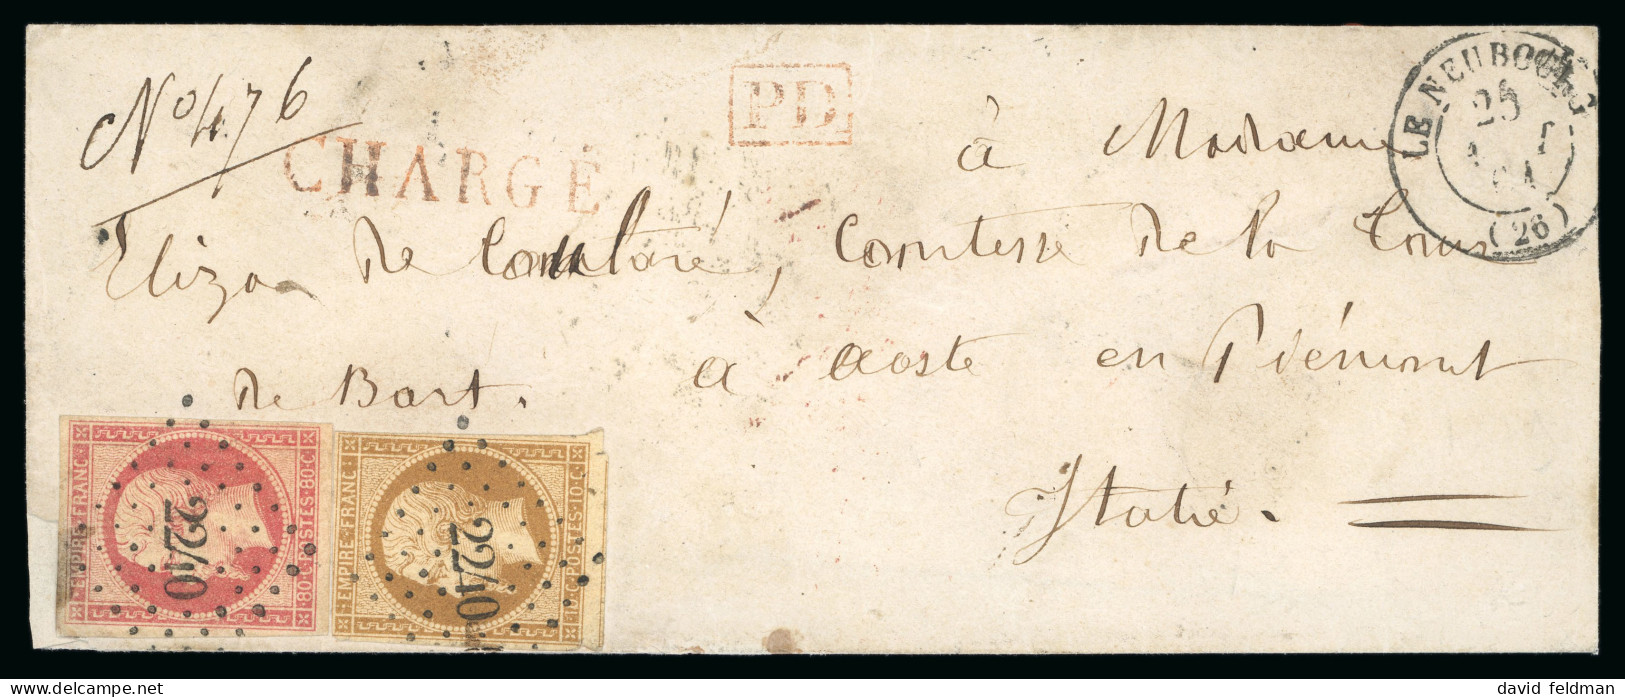 No 476
PD
CHARGÉ
LE NEUBOURG
25
(26)
à Madame
Eliza de , Comtesse de la Tour
de Bart. à Aoste en Piémont
Italie.
EMPIRE-FRANC.
80·C·POSTES·80·C·
2240
EMPIRE-FRANC.
10·C·POSTES·10·C·
2240
david feldman